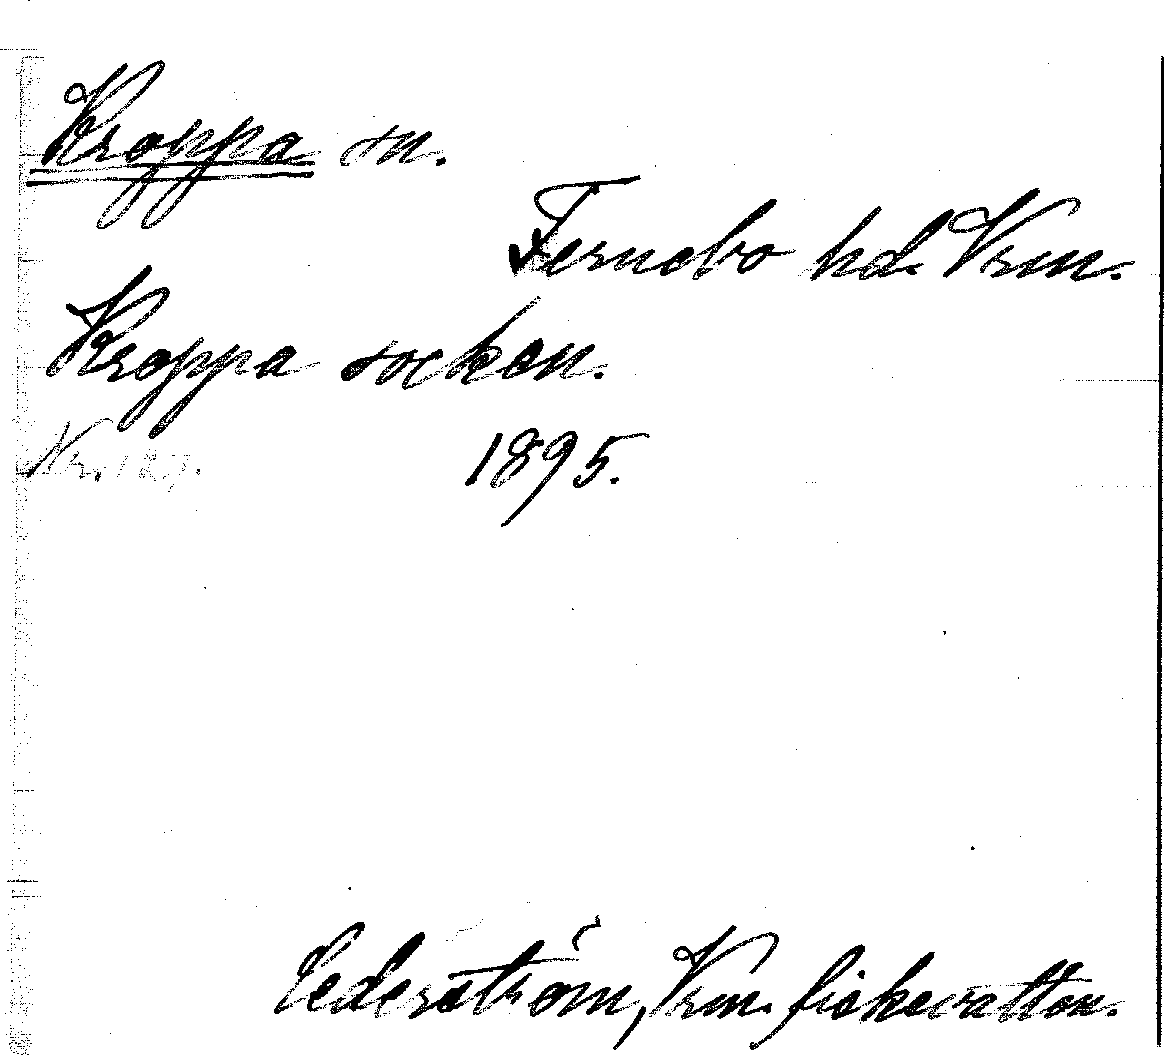 Kroppa sn.
Fernebo hd. Vrm.
Kroppa socken.
Nr. 127. 1895.
Cederström, Vrm. fiskevatten.